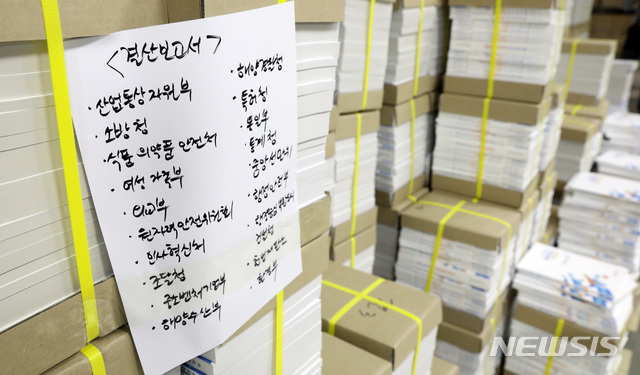 <결산보고서>
· 산업통상자원부
· 소방청
· 식품의약품안전처
· 여성가족부
· 외교부
· 원자력안전위원회
· 인사혁신처
· 조달청
· 중소벤처기업부
· 해양수산부
· 해양경찰청
· 특허청
· 통일부
· 통계청
· 중앙선관위
· 행정안전부
· 환경부
NEWSIS